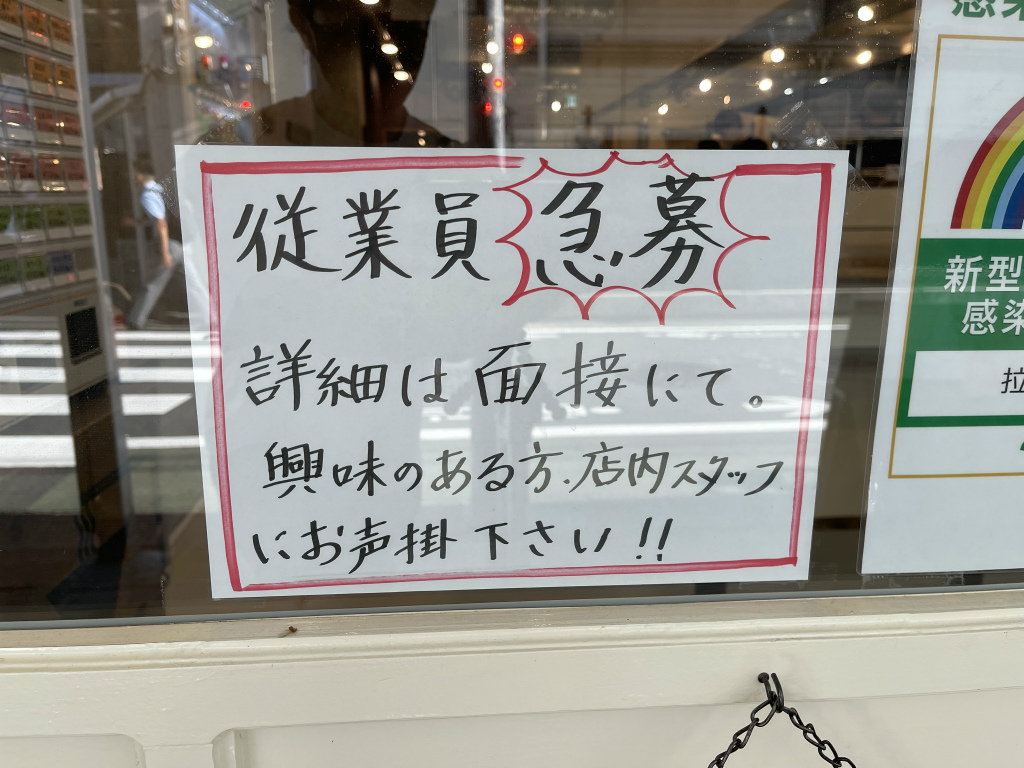 従業員急募
詳細は面接にて。
興味のある方、店内スタッフ
にお声掛下さい!!
感染
新型
感染
拉